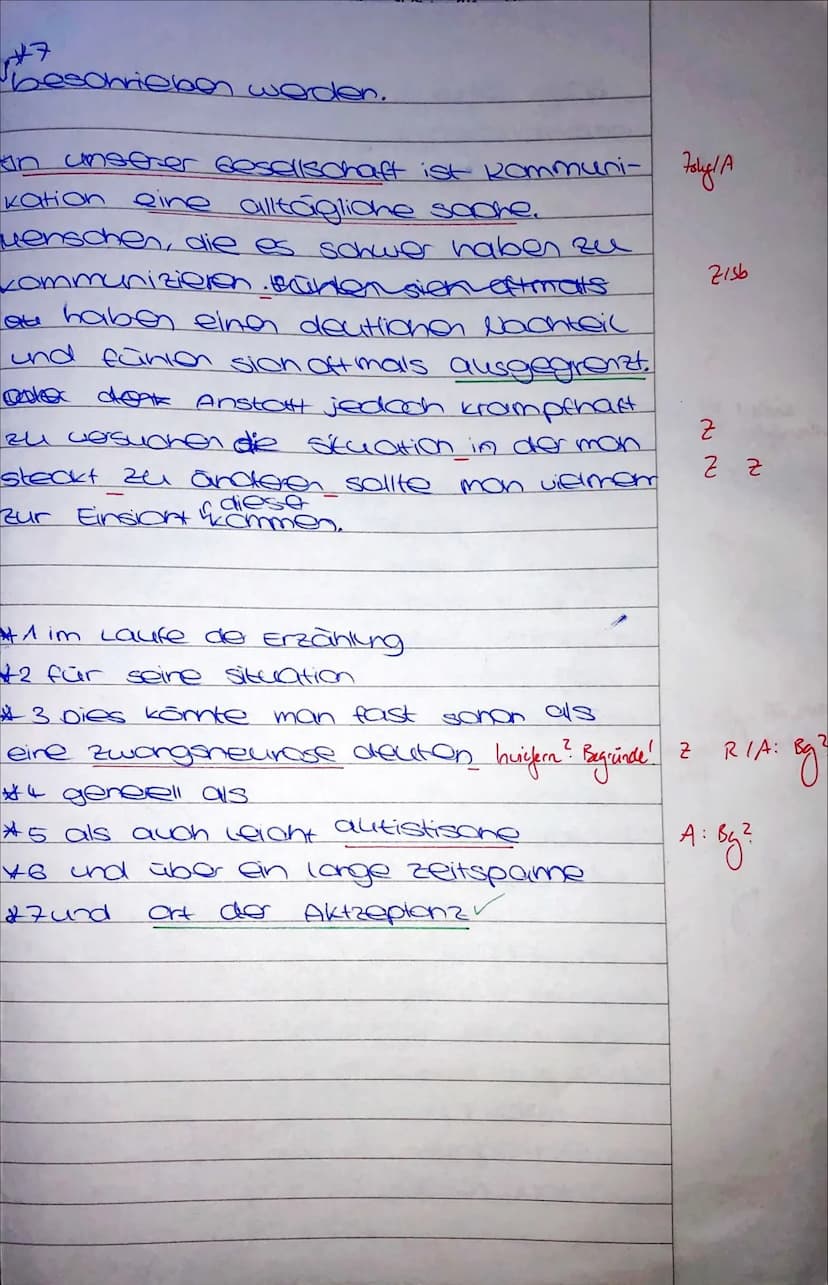 *7
beschrieben werden.
In unserer Gesellschaft ist Kommuni- Folg/A
kation eine alltägliche sache.
Menschen, die es schwer haben zu
kommunizieren. fühlen sich oftmals Z/sb
haben einen deutlichen Nachteil
und fühlen sich oftmals ausgegrenzt.
Anstatt jedoch krampfhaft
zu versuchen die situation in der man Z
steckt zu änderen sollte man vielmehr Z Z
dieser
zur Einsicht kommen.
*1 im Laufe de Erzählung
*2 für seine situation
*3 Dies könnte man fast schon als
eine zwangsneurose deuten inwiefern? Begründe! Z R/A: Bg?
*4 generell als
*5 als auch leicht autistische A: Bg?
*6 und über ein lange zeitspanne
*7 und ort der Aktzeptanz ✓